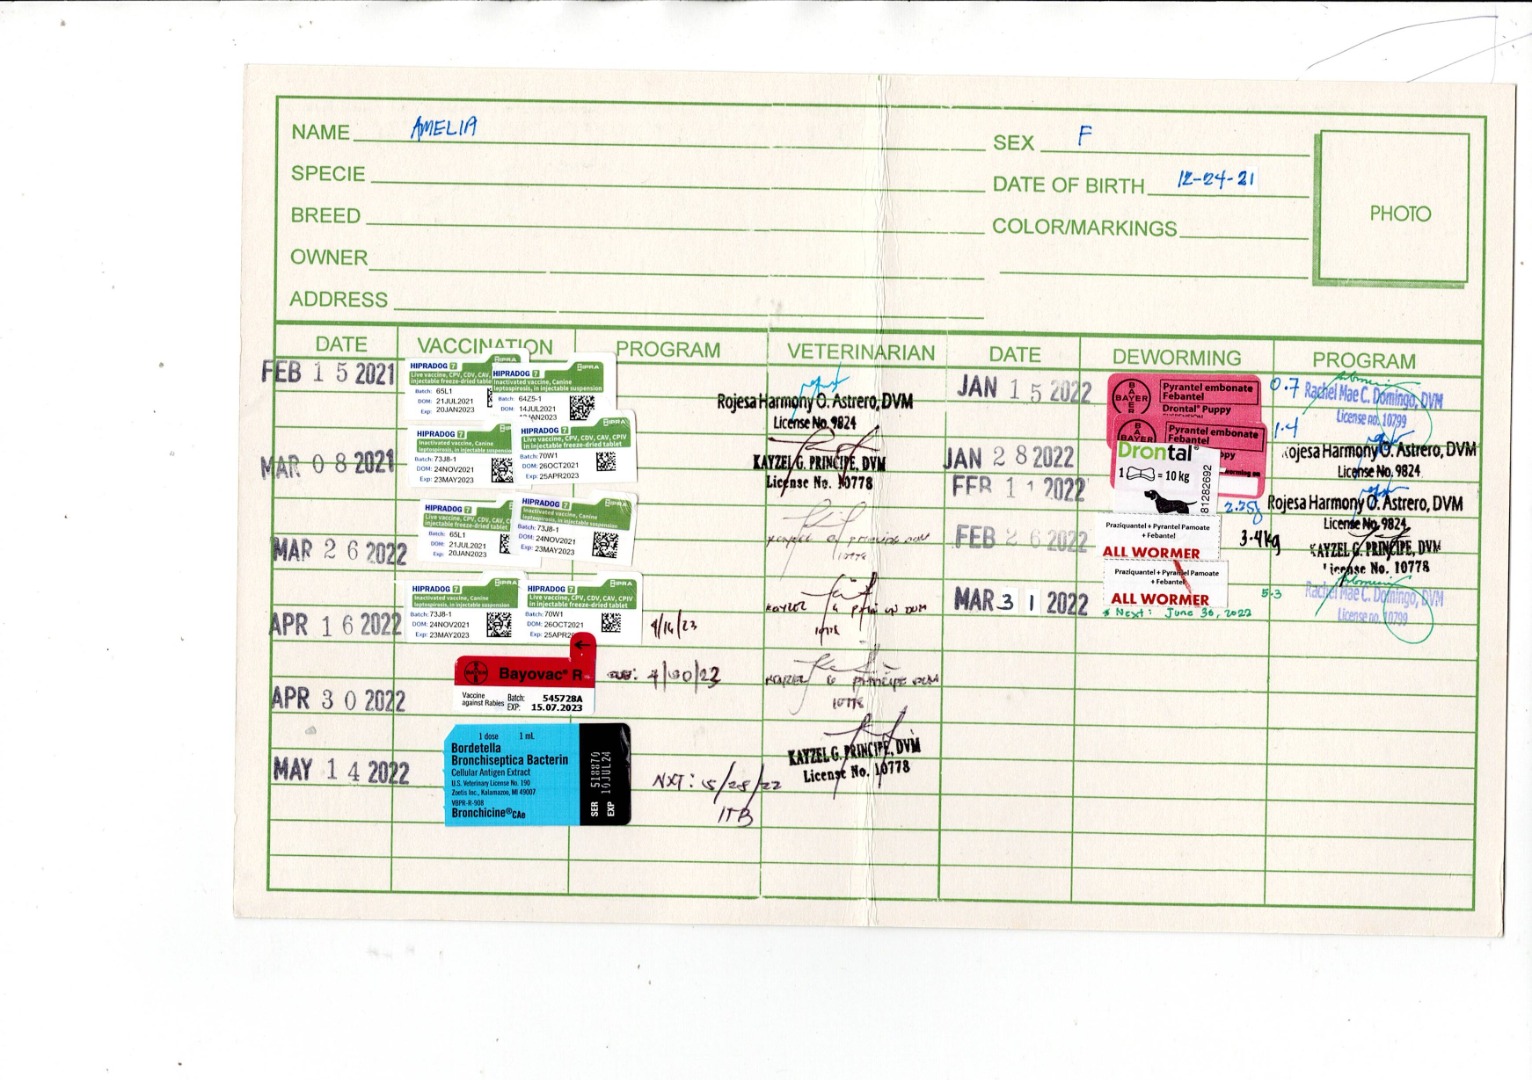 NAME AMELIA
SPECIE
BREED
OWNER
ADDRESS
SEX F
DATE OF BIRTH 12-24-21
COLOR/MARKINGS
PHOTO
DATE VACCINATION PROGRAM VETERINARIAN DATE DEWORMING PROGRAM
FEB 15 2021
HIPRADOG 7
Live vaccine, CPV, CDV, CAV,
injectable freeze-dried tablet
Batch: 65L1
DOM: 21JUL2021
Exp: 20JAN2023
HIPRA
HIPRADOG 7
Inactivated vaccine, Canine
leptospirosis, in injectable suspension
Batch: 64Z5-1
DOM: 14JUL2021
JAN2023
Rojesa Harmony O. Astrero, DVM
License No. 9824
MAR 08 2021
HIPRADOG 7
Inactivated vaccine, Canine
Batch: 73J8-1
DOM: 24NOV2021
Exp: 23MAY2023
HIPRADOG 7
Live vaccine, CPV, CDV, CAV, CPIV
in injectable freeze-dried tablet
Batch: 70W1
DOM: 26OCT2021
Exp: 25APR2023
KAYZEL G. PRINCIPE, DVM
License No. 10778
MAR 26 2022
HIPRADOG 7
Live vaccine, CPV, CDV, CAV, C
injectable freeze-dried tablet
Batch: 65L1
DOM: 21JUL2021
Exp: 20JAN2023
HIPRADOG 7
HIPRA
Inactivated vaccine, Canine
leptospirosis, in injectable suspension
Batch: 73J8-1
DOM: 24NOV2021
Exp: 23MAY2023
10778
APR 16 2022
HIPRADOG 7
HIPRA
Inactivated vaccine, Canine
leptospirosis, in injectable suspension
Batch: 73J8-1
DOM: 24NOV2021
Exp: 23MAY2023
HIPRADOG 7
HIPRA
Live vaccine, CPV, CDV, CAV, CPIV
in injectable freeze-dried tablet
Batch: 70W1
DOM: 26OCT2021
Exp: 25APR2
4/16/23
10778
APR 30 2022
BAYER
Bayovac® R
Vaccine
against Rabies
Batch: 545728A
EXP: 15.07.2023
4/30/23
10778
MAY 14 2022
1 dose 1 mL
Bordetella
Bronchiseptica Bacterin
Cellular Antigen Extract
U.S. Veterinary License No. 190
Zoetis Inc., Kalamazoo, MI 49007
VBPR-R-908
Bronchicine®CAe
SER 518870
EXP 10JUL24
NXT: 5/28/22
ITB
KAYZEL G. PRINCIPE, DVM
License No. 10778
JAN 15 2022
BAYER
Pyrantel embonate
Febantel
Drontal® Puppy
0.7
Rachel Mae C. Domingo, DVM
License no. 10799
JAN 28 2022
BAYER
Pyrantel embonate
Febantel
1.4
Rojesa Harmony O. Astrero, DVM
License No. 9824
FEB 11 2022
Drontal®
1 = 10 kg
81282692
Rojesa Harmony O. Astrero, DVM
License No. 9824
FEB 26 2022
Praziquantel + Pyrantel Pamoate
+ Febantel
ALL WORMER
3.4kg
KAYZEL G. PRINCIPE, DVM
License No. 10778
MAR 31 2022
Praziquantel + Pyrantel Pamoate
+ Febantel
ALL WORMER
* Next: June 30, 2022
5.3
Rachel Mae C. Domingo, DVM
License no. 10799